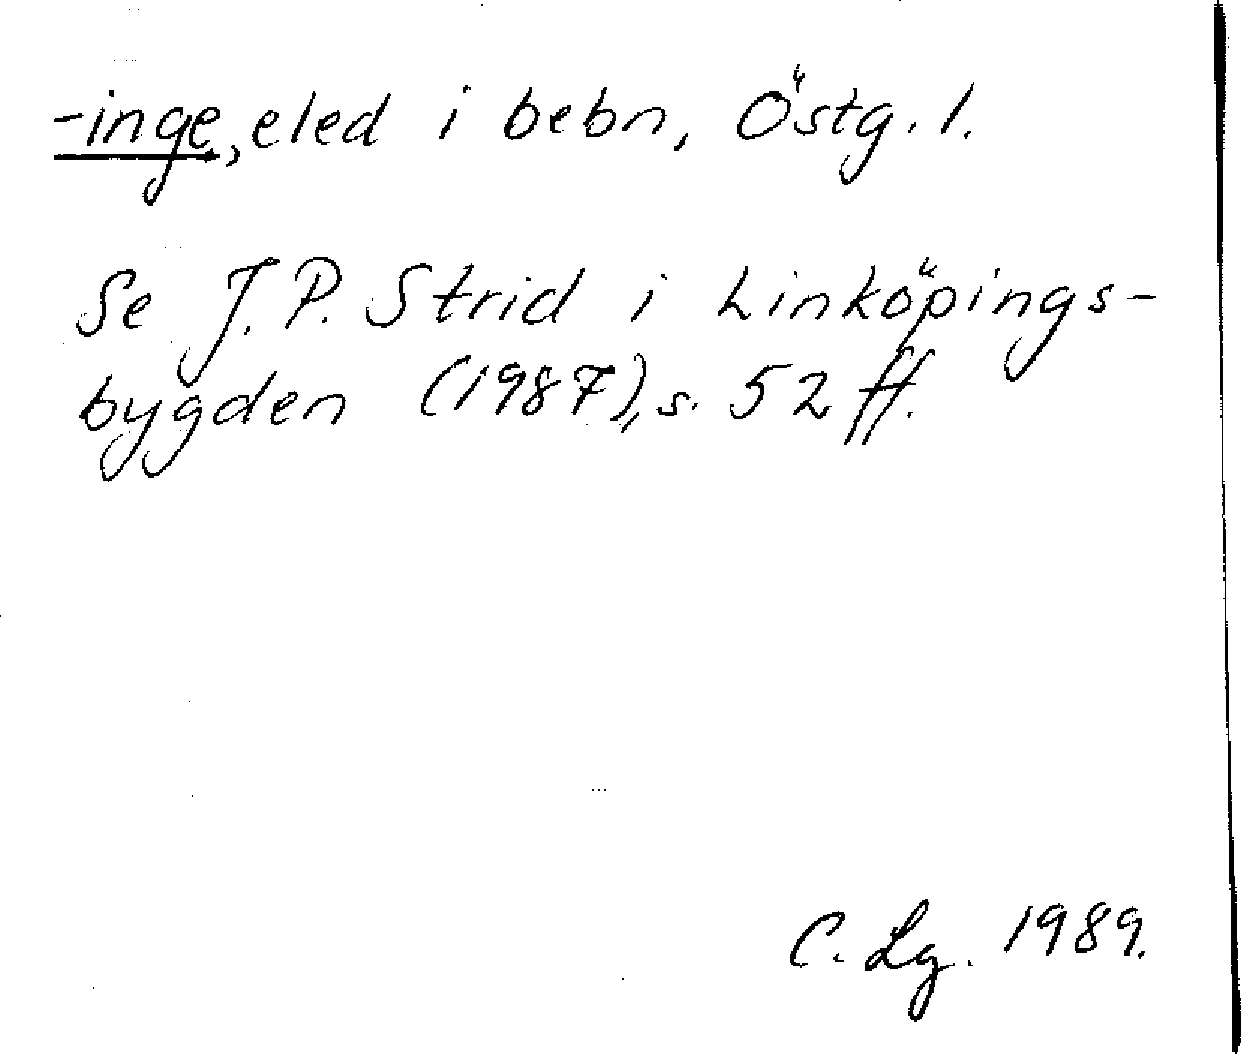 -inge, eled i bebn, Östg. l.
Se J. P. Strid i Linköpings-
bygden (1987), s. 52 ff.
C. Lg. 1989.